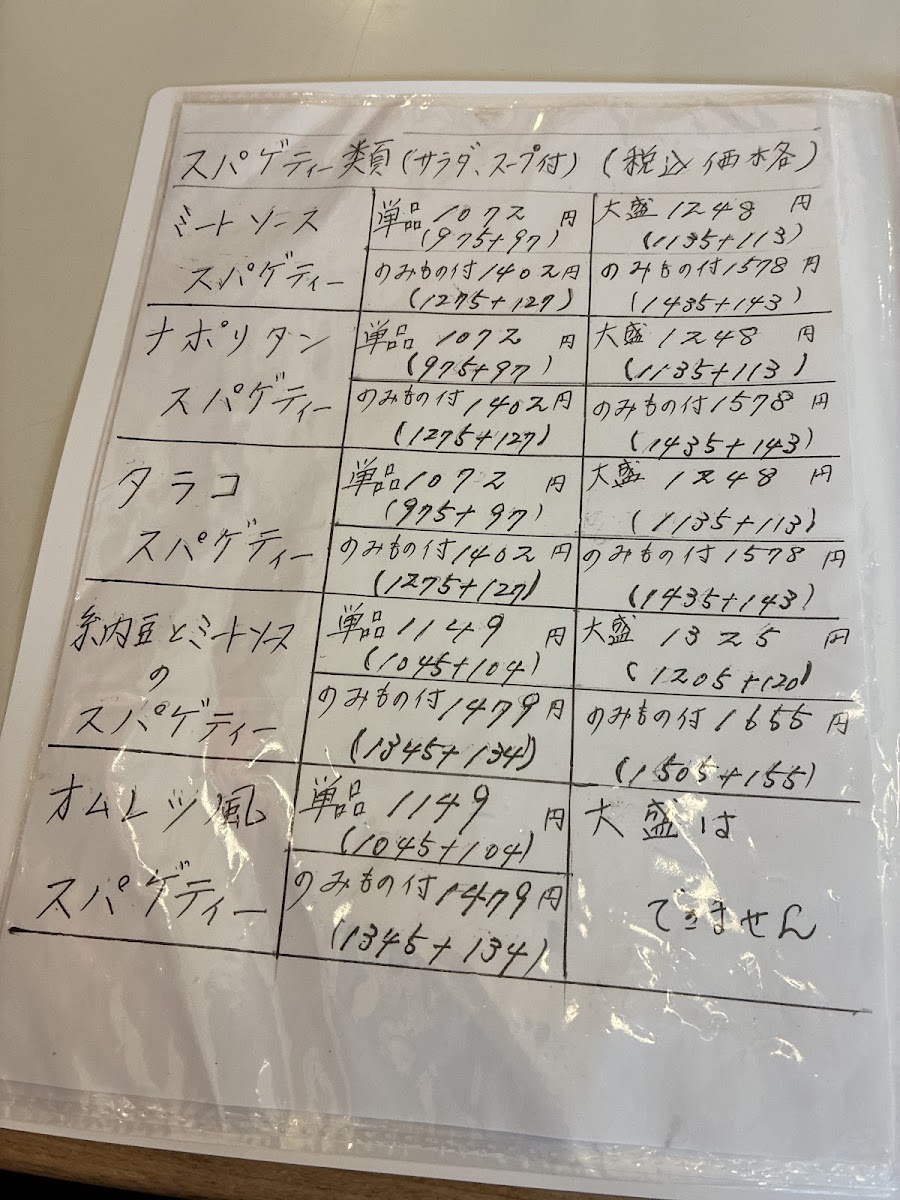 スパゲティー類(サラダ、スープ付) (税込価格)
ミートソース
スパゲティー
単品1072円
(975+97)
大盛1248円
(1135+113)
のみもの付1402円
(1275+127)
のみもの付1578円
(1435+143)
ナポリタン
スパゲティー
単品1072円
(975+97)
大盛1248円
(1135+113)
のみもの付1402円
(1275+127)
のみもの付1578円
(1435+143)
タラコ
スパゲティー
単品1072円
(975+97)
大盛1248円
(1135+113)
のみもの付1402円
(1275+127)
のみもの付1578円
(1435+143)
納豆とミートソース
の
スパゲティー
単品1149円
(1045+104)
大盛1325円
(1205+120)
のみもの付1479円
(1345+134)
のみもの付1655円
(1505+155)
オムレツ風
スパゲティー
単品1149円
(1045+104)
のみもの付1479円
(1345+134)
大盛は
できません